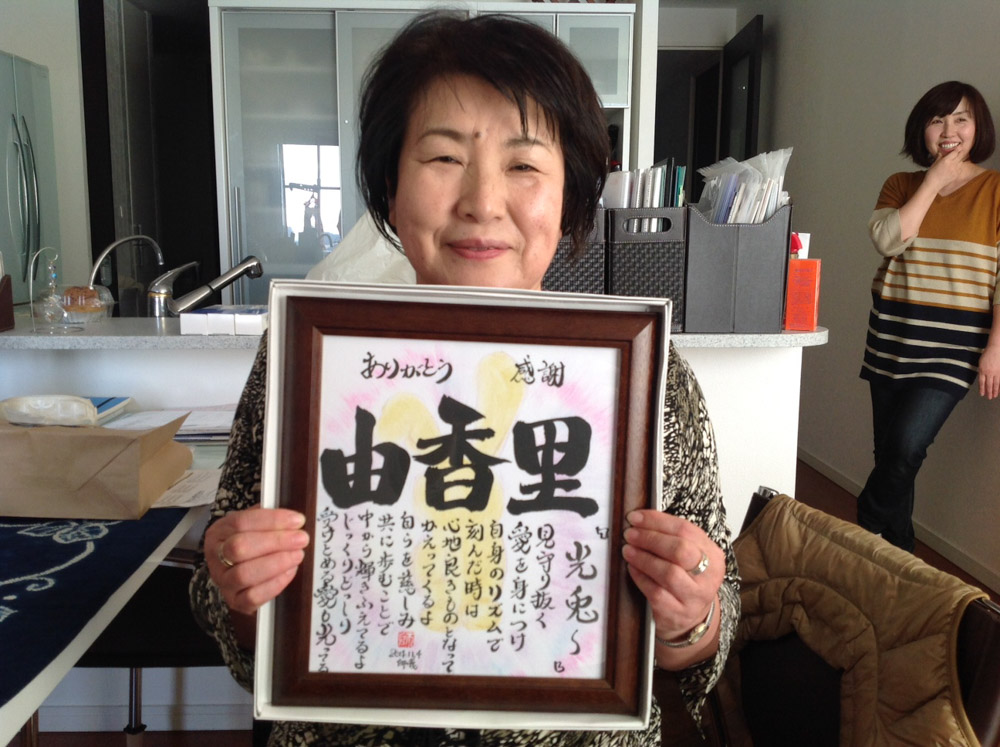 ありがとう
感謝
由香里
「光兎〜
見守り抜く
愛を身につけ
自身のリズムで
刻んだ時は
心地良きものとなって
かえってくるよ
自らを慈しみ
共に歩むことで
中から輝きふえてるよ
じっくりどっしり
受けとめる愛も光ってる
」